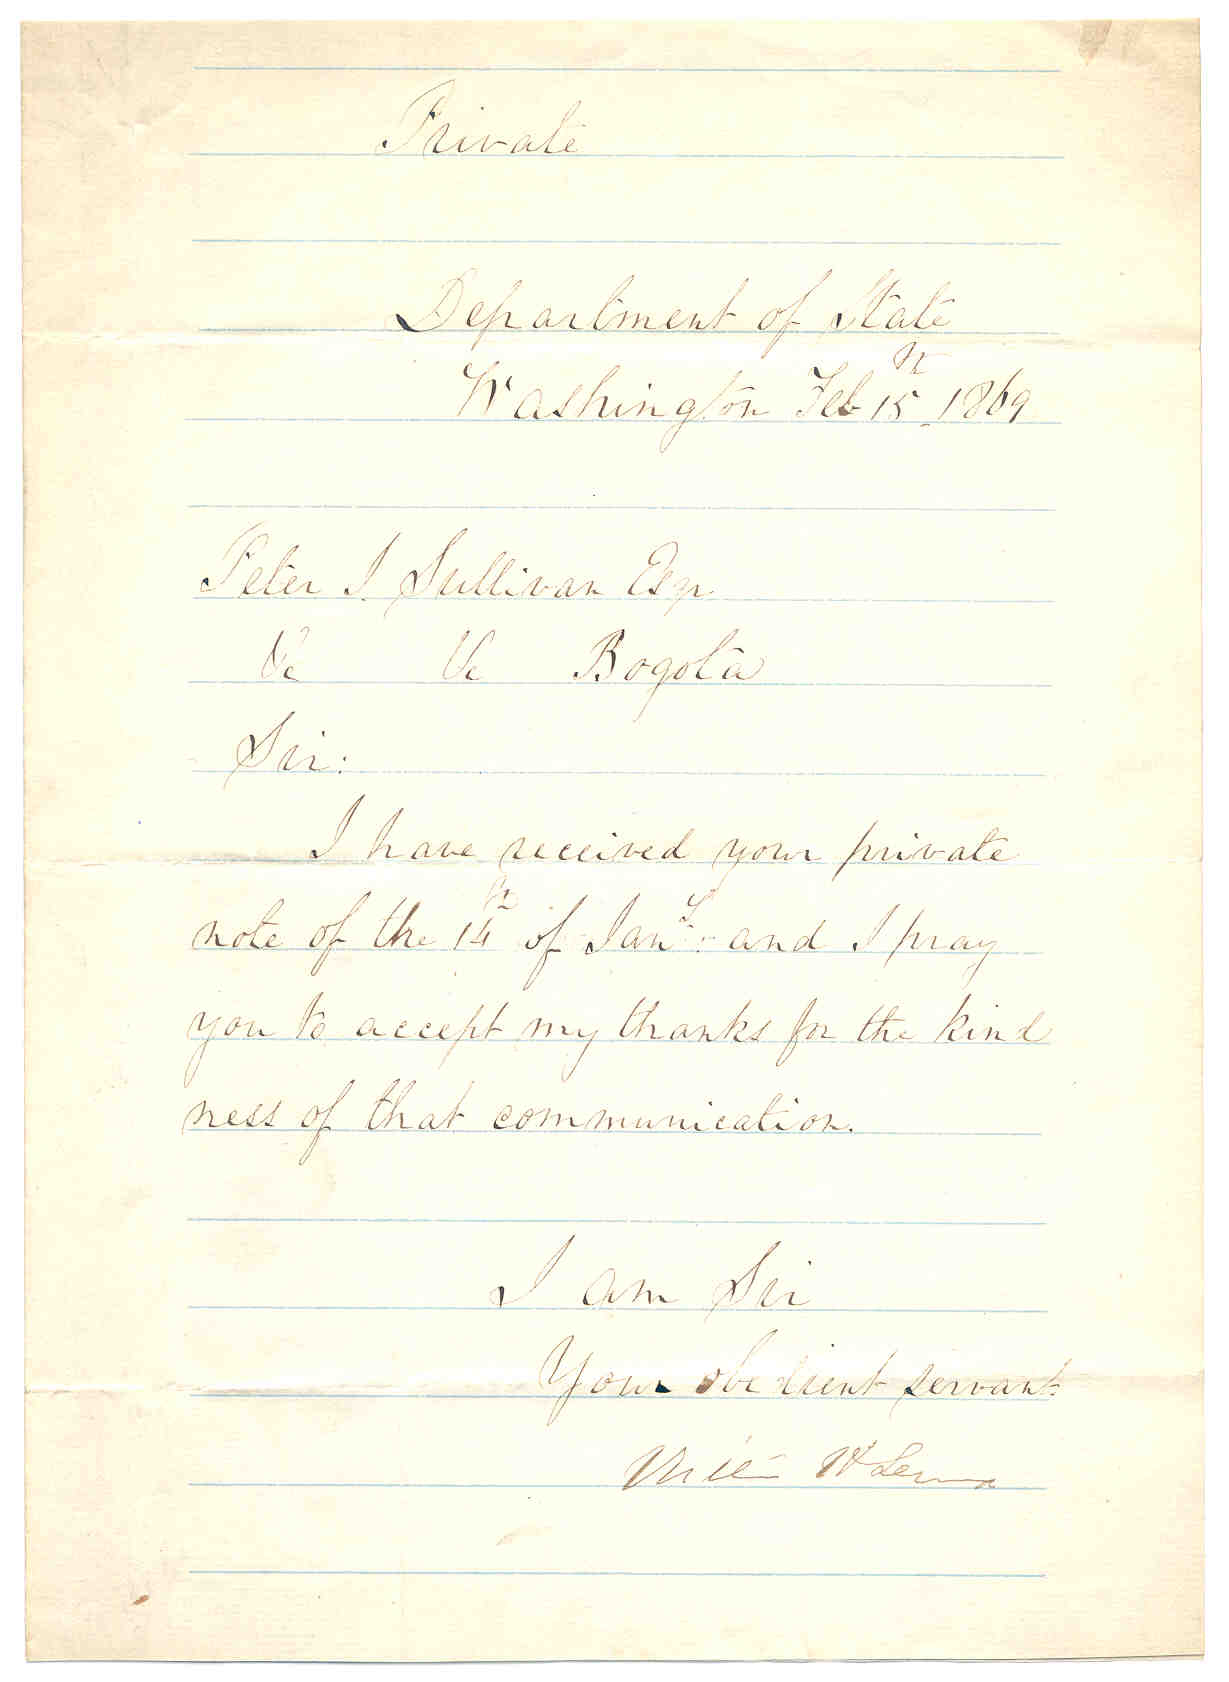 Private
Department of State
Washington Feb 15th 1869
Peter J. Sullivan Esqr
&c &c Bogota
Sir:
I have received your private
note of the 14th of Jany. and I pray
you to accept my thanks for the kind
ness of that communication.
I am Sir
Your obedient servant